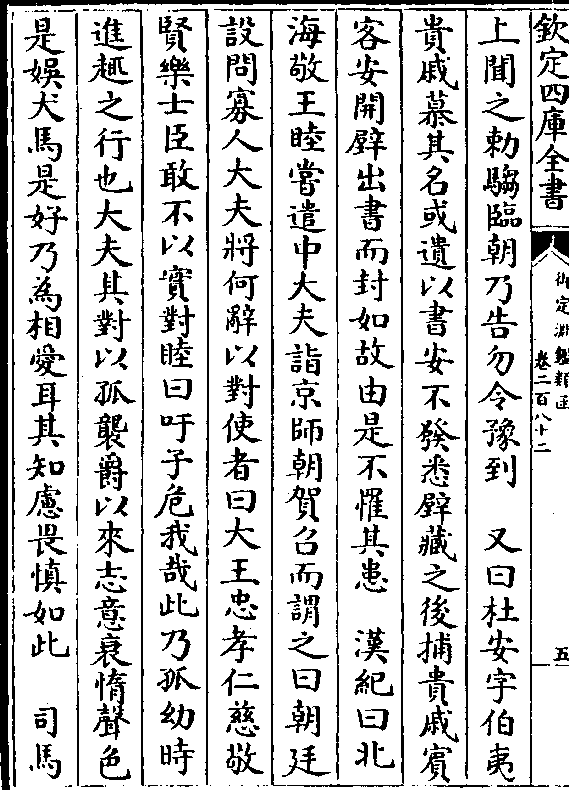 欽定四庫全書
御定淵鑑類函
卷二百八十二
五
上聞之勅騶臨朝乃告勿令豫到　又曰杜安字伯夷
貴戚慕其名或遺以書安不發悉壁藏之後捕貴戚賓
客安開壁出書而封如故由是不罹其患　漢紀曰北
海敬王睦嘗遣中大夫詣京師朝賀召而謂之曰朝廷
設問寡人大夫將何辭以對使者曰大王忠孝仁慈敬
賢樂士臣敢不以實對睦曰吁子危我哉此乃孤幼時
進趣之行也大夫其對以孤襲爵以來志意衰惰聲色
是娛犬馬是好乃為相愛耳其知慮畏慎如此　司馬